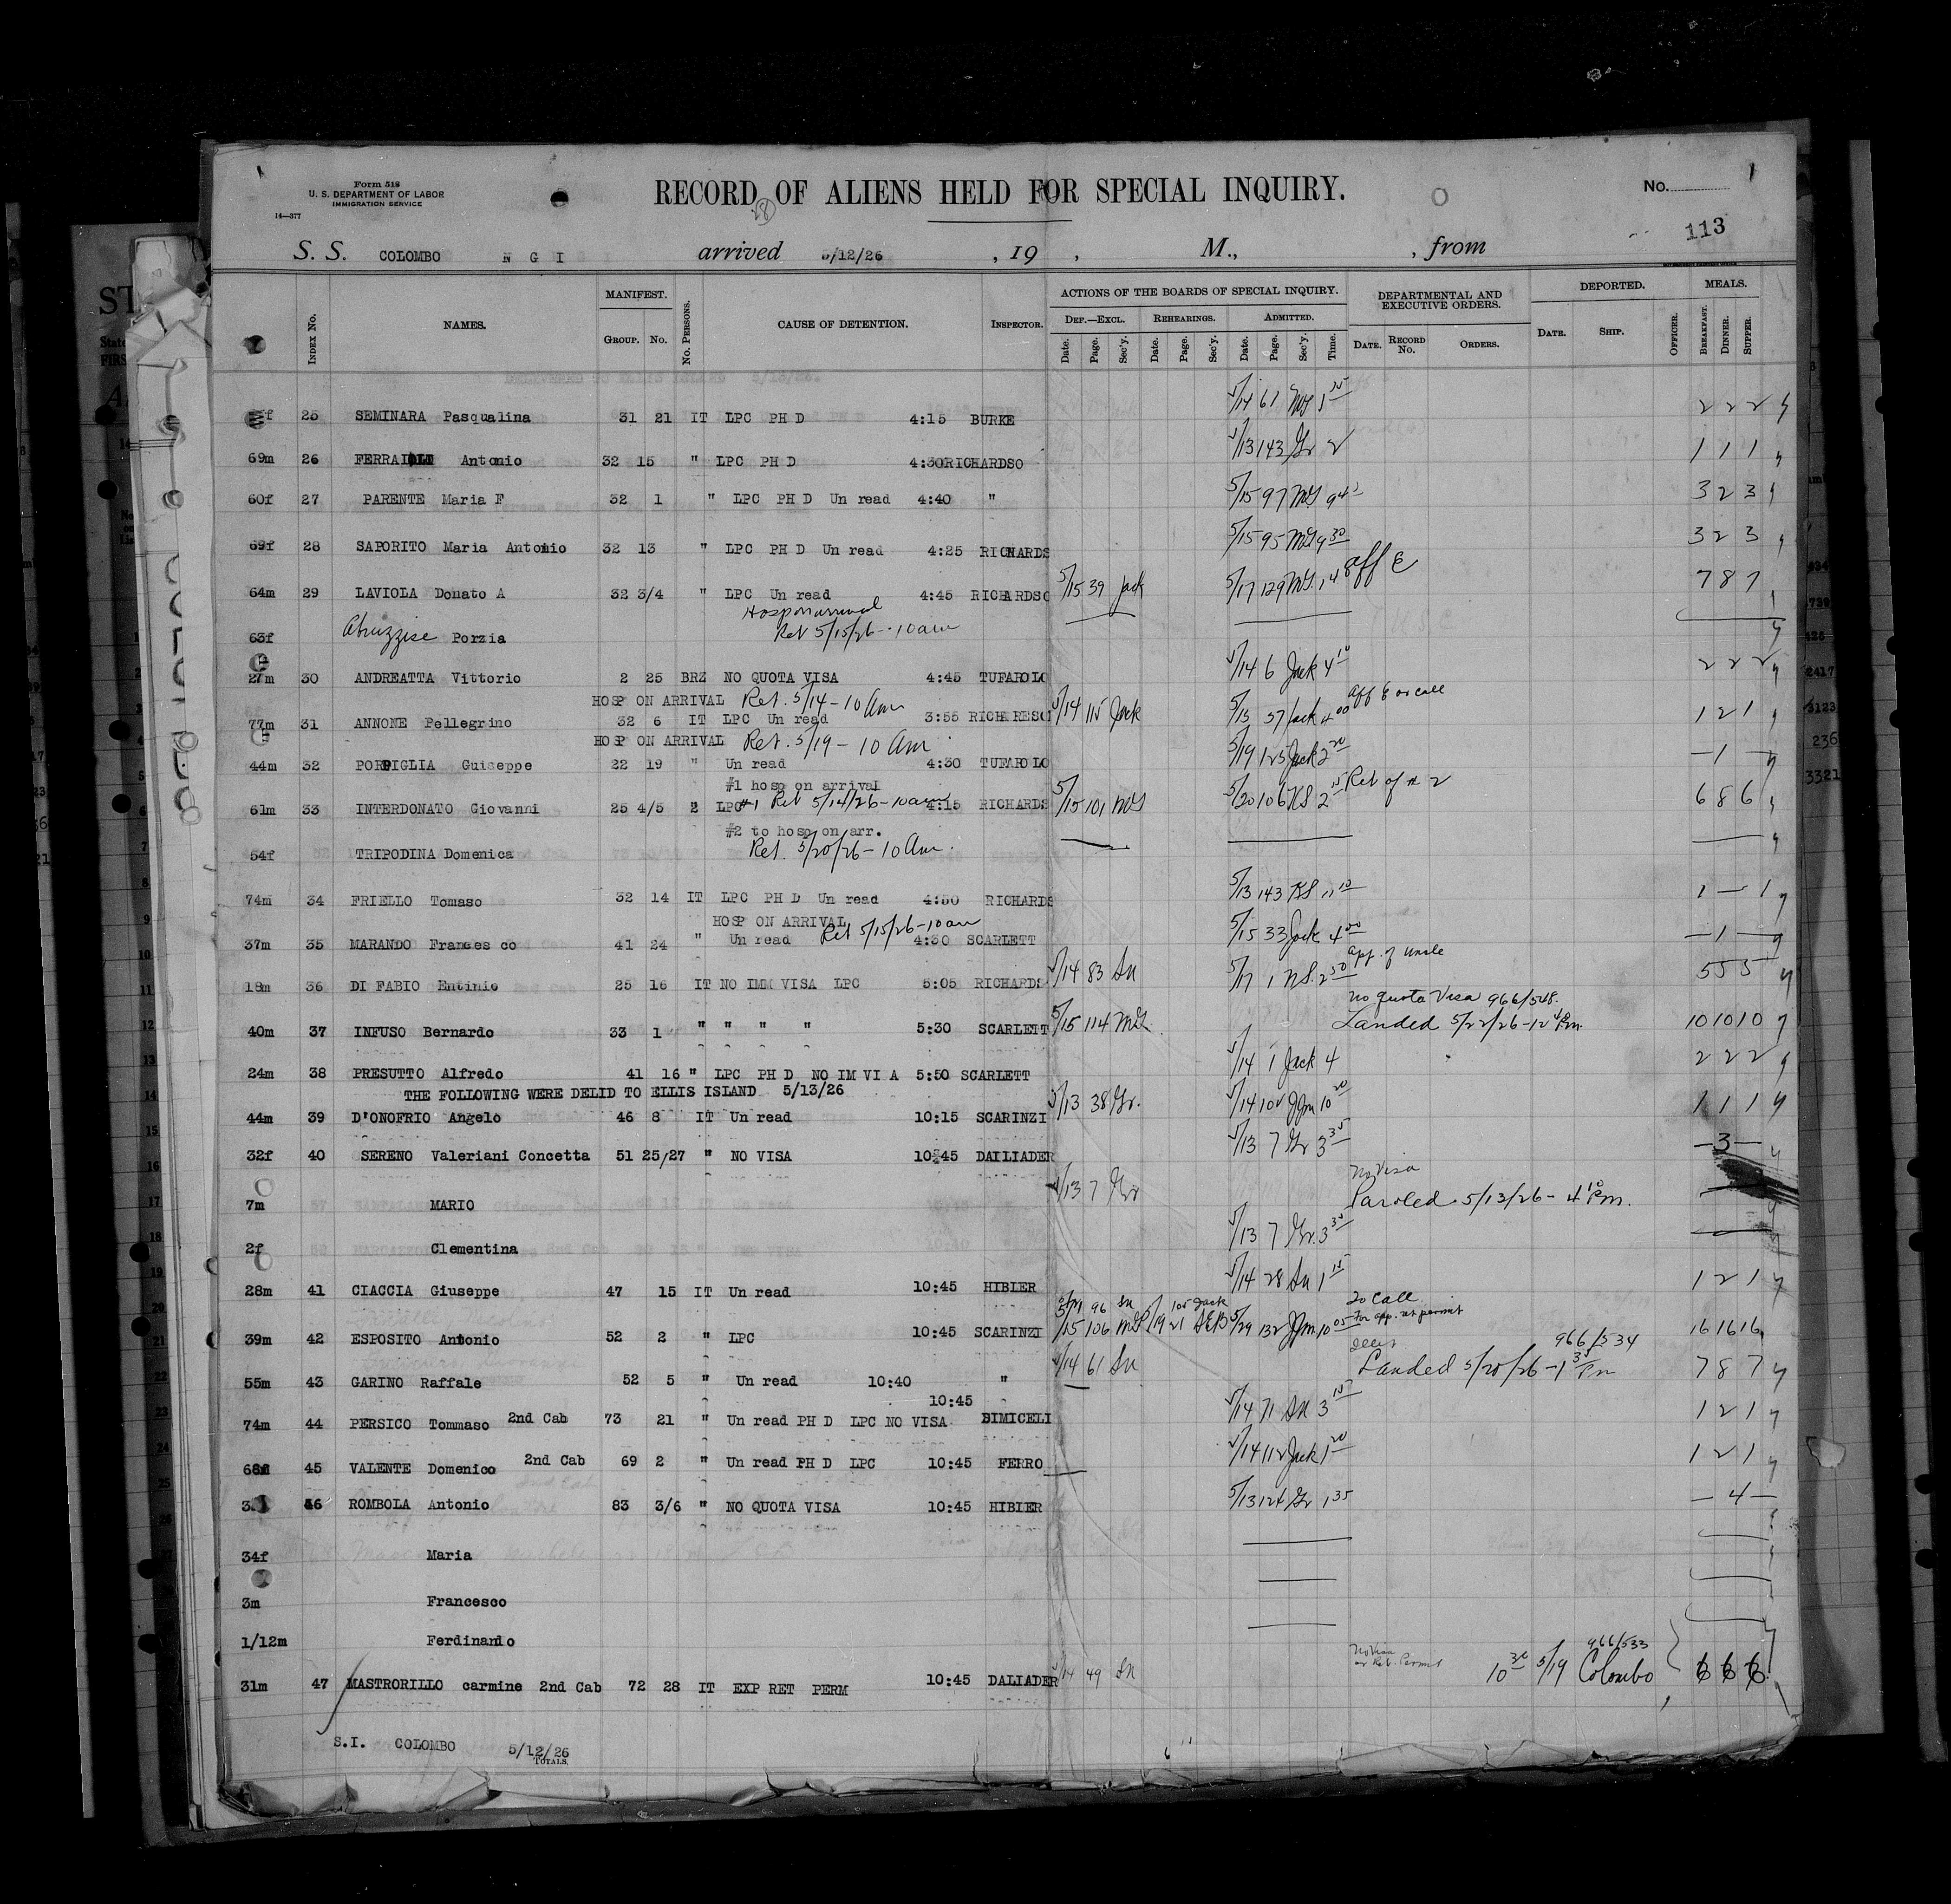 Form 518
U. S. DEPARTMENT OF LABOR
IMMIGRATION SERVICE
14—377
RECORD OF ALIENS HELD FOR SPECIAL INQUIRY.
No.
113
S. S. COLOMBO N G I arrived 5/12/26 , 19 , M., , from
INDEX No. NAMES. MANIFEST. GROUP. No. No. PERSONS. CAUSE OF DETENTION. INSPECTOR. ACTIONS OF THE BOARDS OF SPECIAL INQUIRY. DEF.—EXCL. Date. Page. Sec'y. REHEARINGS. Date. Page. Sec'y. ADMITTED. Date. Page. Sec'y. Time. DEPARTMENTAL AND EXECUTIVE ORDERS. DATE. RECORD No. ORDERS. DEPORTED. DATE. SHIP. OFFICER. MEALS. BREAKFAST. DINNER. SUPPER.
25 SEMINARA Pasqualina 31 21 IT LPC PH D 4:15 BURKE 5/14 61 2 2 2
69m 26 Antonio 32 15 " LPC PH D 4:30 RICHARDSO 5/13 143 Gr 2 1 1 1
60f 27 PARENTE Maria F 32 1 " LPC PH D Un read 4:40 " 5/15 97 3 2 3
69f 28 SAPORITO Maria Antonio 32 13 " LPC PH D Un read 4:25 RICHARDS 5/15 95 9 30 3 2 3
64m 29 LAVIOLA Donato A 32 3/4 " LPC Un read 4:45 RICHARDSO 5/15 39 Jack 5/17 129 aff E 7 8 7
Hosp on arrival
63f Abruzzise Porzia Ret 5/15/26 - 10 am
27m 30 ANDREATTA Vittorio 2 25 BRZ NO QUOTA VISA 4:45 TUFAROLO 5/14 6 Jack 4 10 2 2 2
HOSP ON ARRIVAL Ret. 5/14 - 10 Am
77m 31 ANNONE Pellegrino 32 6 IT LPC Un read 3:55 RICHARESO 5/14 115 Jack 5/15 57 Jack 4 00 aff E on call 1 2 1
HOSP ON ARRIVAL Ret. 5/19 - 10 Am
44m 32 PORPIGLIA Guiseppe 22 19 " Un read 4:30 TUFAROLO 5/19 125 Jack 2 20 - 1 -
#1 hosp on arrival
61m 33 INTERDONATO Giovanni 25 4/5 2 LPC #1 Ret 5/14/26 - 10 am 4:15 RICHARDS 5/15 101 5/20 106 2 15 Ret of # 2 6 8 6
#2 to hosp on arr.
54f TRIPODINA Domenica Ret. 5/20/26 - 10 Am.
74m 34 FRIELLO Tomaso 32 14 IT LPC PH D Un read 4:50 RICHARDS 5/13 143 11 10 1 - 1
HOSP ON ARRIVAL Ret 5/15/26 - 10 am
37m 35 MARANDO Francesco 41 24 " Un read 4:30 SCARLETT 5/15 33 Jack 4 00 - 1 -
18m 36 DI FABIO Entinio 25 16 IT NO IMM VISA LPC 5:05 RICHARDS 5/14 83 Sn 5/17 1 2 50 app. of uncle 5 5 5
no quota Visa 966/548.
40m 37 INFUSO Bernardo 33 1 " " " " 5:30 SCARLETT 5/15 114 Landed 5/22/26 - 12 Pm. 10 10 10
24m 38 PRESUTTO Alfredo 41 16 " LPC PH D NO IM VI A 5:50 SCARLETT 5/14 1 Jack 4 2 2 2
THE FOLLOWING WERE DELID TO ELLIS ISLAND 5/13/26
44m 39 D'ONOFRIO Angelo 46 8 IT Un read 10:15 SCARINZI 5/13 38 Gr. 5/14 10 20 1 1 1
32f 40 SERENO Valeriani Concetta 51 25/27 " NO VISA 10:45 DAILIADER 5/13 7 Gr 3 35 - 3 -
No Visa
7m MARIO 5/13 7 Gr Paroled 5/13/26 - 4 10 Pm.
2f Clementina 5/13 7 Gr. 3 35
28m 41 CIACCIA Giuseppe 47 15 IT Un read 10:45 HIBIER 5/14 28 Sn 1 15 1 2 1
To Call
39m 42 ESPOSITO Antonio 52 2 " LPC 10:45 SCARINZI 5/15 106 5/29 132 10 05 For app. ret permit 16 16 16
966/534
55m 43 GARINO Raffale 52 5 " Un read 10:40 " 5/14 61 Sn Landed 5/20/26 - 1 35 Pm 7 8 7
74m 44 PERSICO Tommaso 2nd Cab 73 21 " Un read PH D LPC NO VISA 10:45 DIMICELI 5/14 71 Sn 3 15 1 2 1
68m 45 VALENTE Domenico 2nd Cab 69 2 " Un read PH D LPC 10:45 FERRO 5/14 112 Jack 1 20 1 2 1
46 ROMBOLA Antonio 83 3/6 " NO QUOTA VISA 10:45 HIBIER 5/13 124 Gr 1 35 - 4 -
34f Maria
3m Francesco
1/12m Ferdinando
No Visa or Ret. Permit 966/533
31m 47 MASTRORILLO carmine 2nd Cab 72 28 IT EXP RET PERM 10:45 DALIADER 5/14 49 Sn 10 30 5/19 Colombo
S.I. COLOMBO 5/12/26
TOTALS.